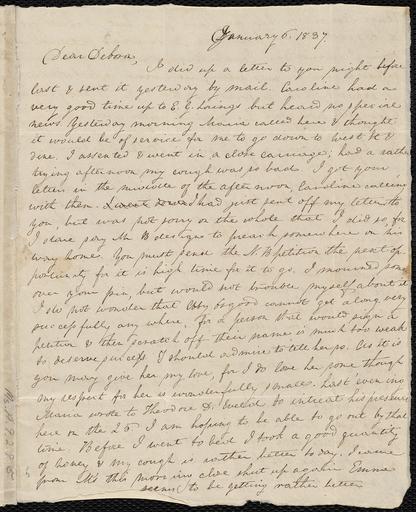 January 6, 1837.
Dear Debora,
I did up a letter to you night before
last & sent it yesterday by mail. Caroline had a
very good time up to E. G. Lorings but heard no special
news. Yesterday morning Maria called here & thought
it would be of service for me to go down to West St &
dine. I assented & went in a close carriage; had a rather
trying afternoon my cough was so bad. I got your
letter in the middle of the afternoon, Caroline coming
with them. had just sent off my letter to
you, but was not sorry on the whole that I did so, for
I dare say Mr B designs to preach somewhere on his
way home. You must send the N B petition the first op-
portunity for it is high time for it to go. I mourned some
over your pin, but would not trouble myself about it
I do not wonder that Abby Osgood cannot get along very
successfully any where. For a person that would sign a
petition & then scratch off their name is much too weak
to deserve success. I should admire to tell her so. As it is
you may give her my love, for I do love her some though
my respect for her is wonderfully small. Last evening
Maria wrote to Theodore D. Weld to intreat his presence
here on the 25. I am hoping to be able to go out by that
time. Before I went to bed I took a good quantity
of honey & my cough is rather better to day. I came
from M's this morning close shut up again Emma
seems to be getting rather better